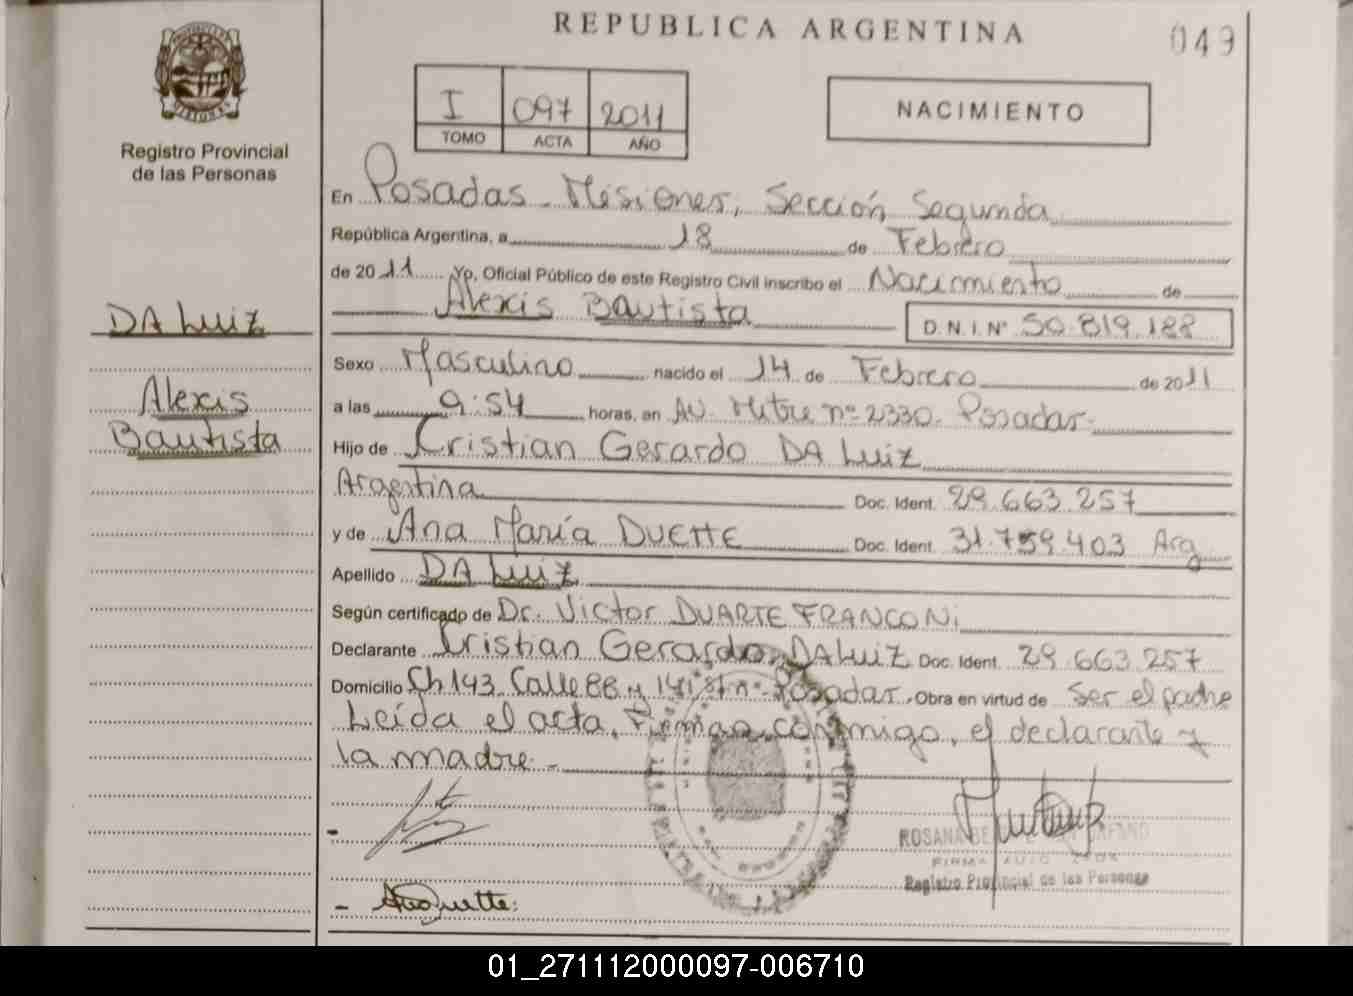 REPUBLICA ARGENTINA
049
Registro Provincial
de las Personas
I 097 2011
TOMO ACTA AÑO
NACIMIENTO
En Posadas - Misiones, Sección Segunda
República Argentina, a 18 de Febrero
de 2011 Yo, Oficial Público de este Registro Civil inscribo el Nacimiento de
Alexis Bautista D.N.I. N° 50.819.188
DA LUIZ
Alexis
Bautista
Sexo Masculino nacido el 14 de Febrero de 2011
a las 9:54 horas, en AV. Mitre nº 2330. Posadas-
Hijo de Cristian Gerardo DA LUIZ
Argentina Doc. Ident. 29.663.257
y de Ana María DUETTE Doc. Ident. 31.759.403 Arg
Apellido DA LUIZ
Según certificado de Dr. Victor DUARTE FRANCONi
Declarante Cristian Gerardo DA LUIZ Doc. Ident. 29.663.257
Domicilio Ch 143 Calle 88 y Posadas. Obra en virtud de Ser el padre
Leída el acta, Firman conmigo, el declarante y
la madre -
ROSANA
FIRMA
Registro Provincial de las Personas
01_271112000097-006710